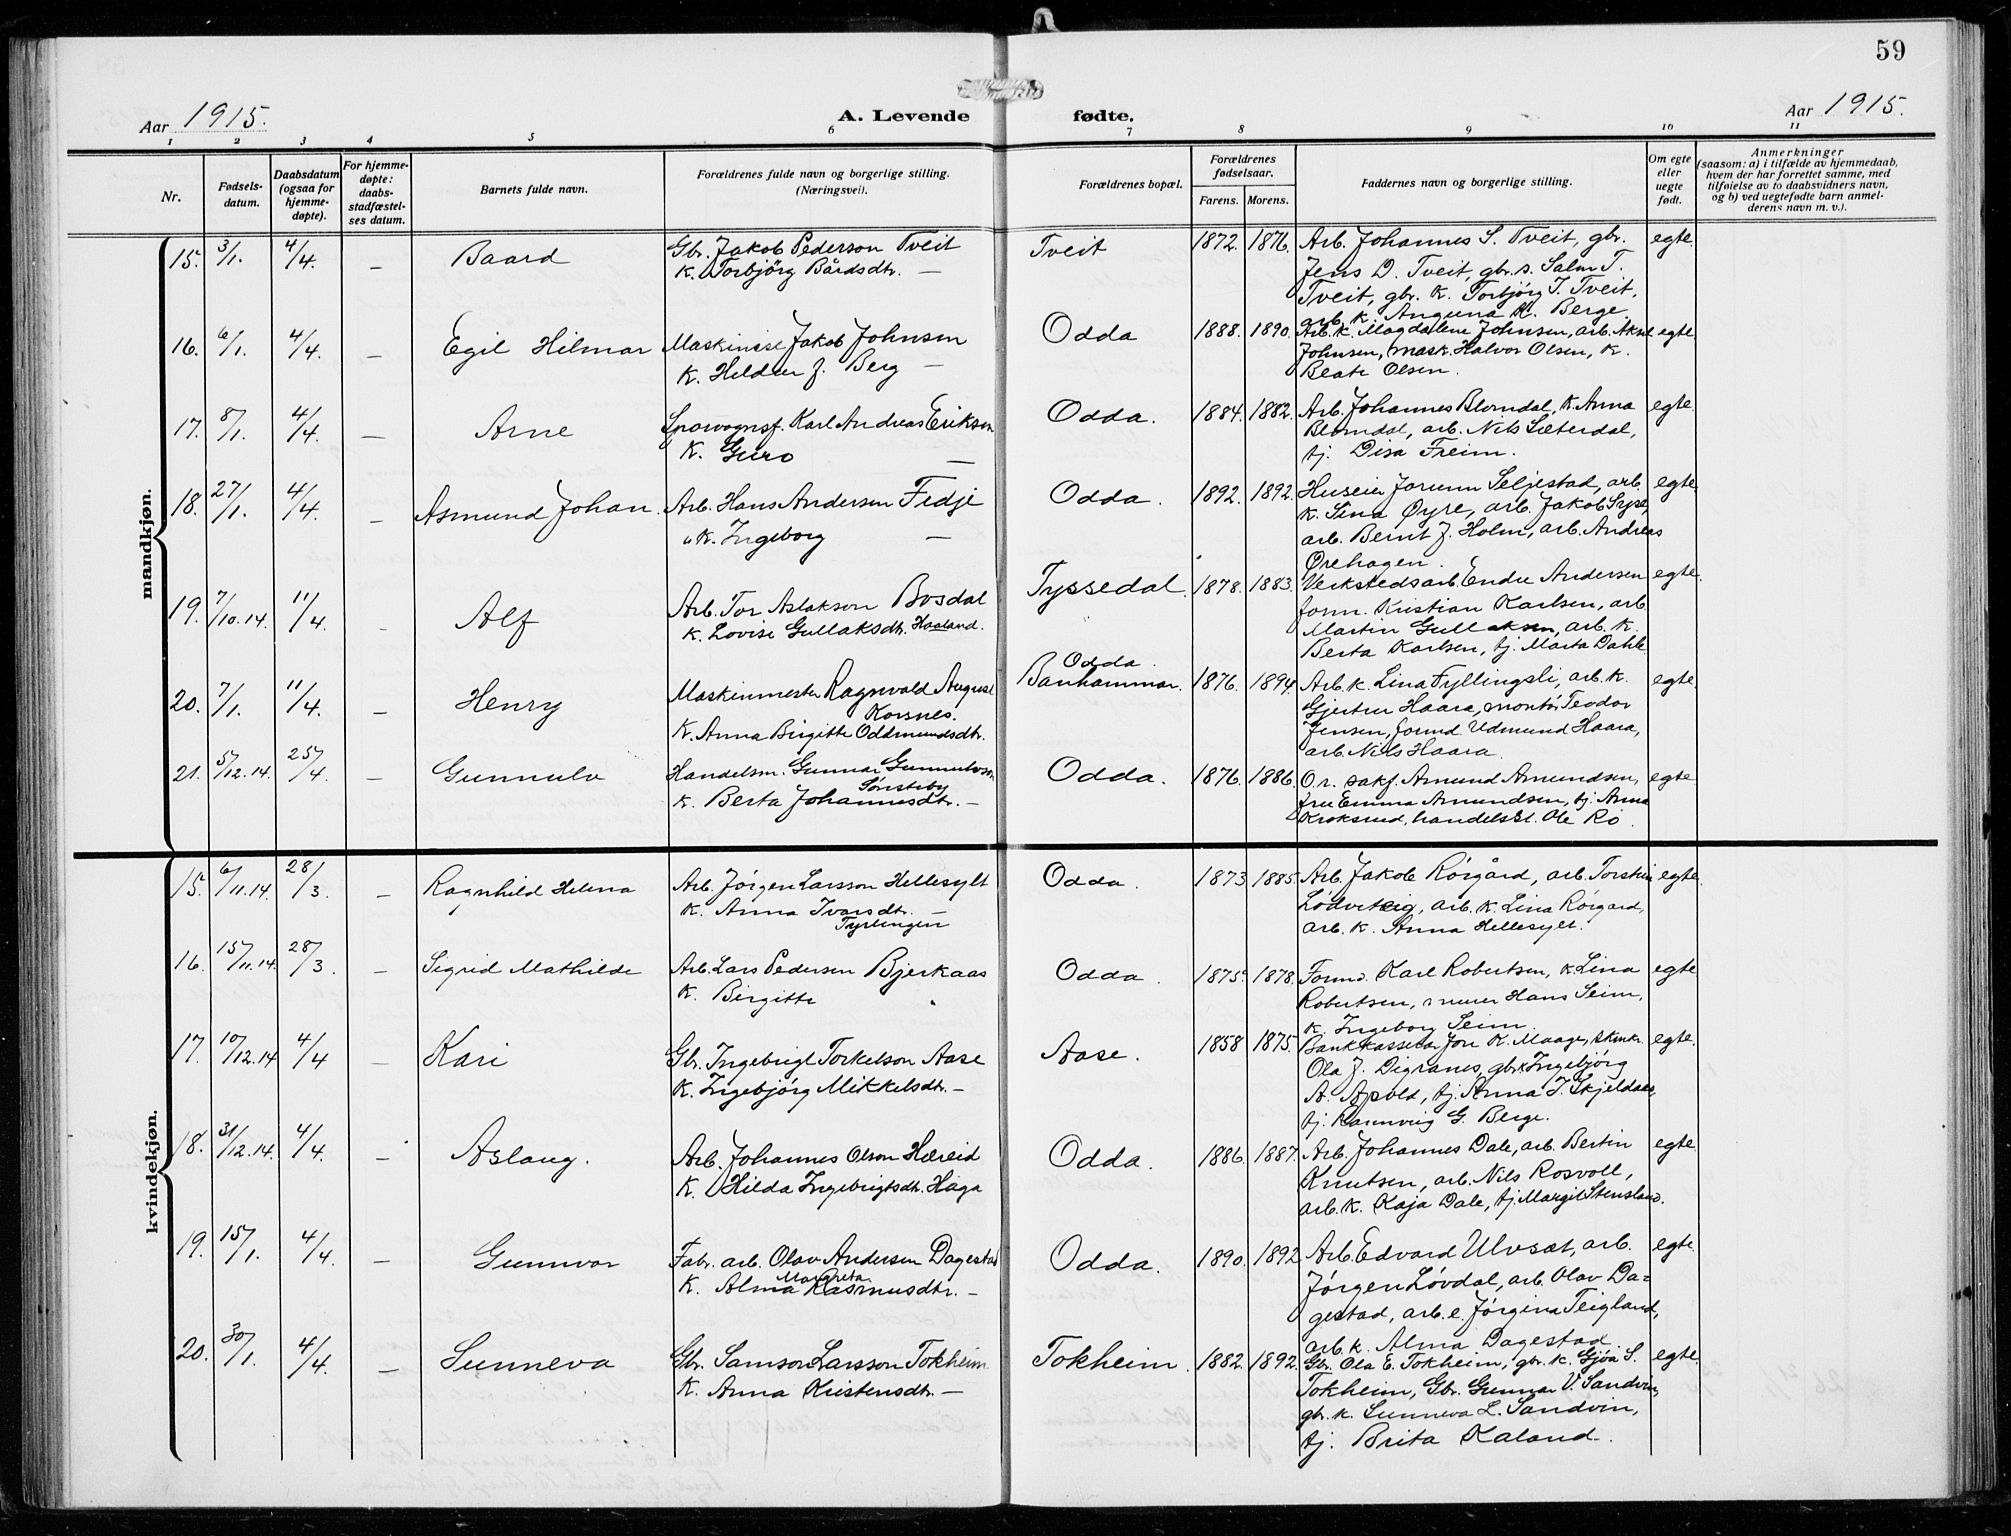 59
Aar 1915.
A. Levende fødte.
Aar 1915.
1 2 3 4 5 6 7 8 9 10 11
Nr.
Fødsels-
datum.
Daabsdatum
(ogsaa for
hjemme-
døpte).
For hjemme-
døpte:
daabs-
stadfæstel-
ses datum.
Barnets fulde navn.
Forældrenes fulde navn og borgerlige stilling.
(Næringsvei).
Forældrenes bopæl.
Forældrenes
fødselsaar.
Farens. Morens.
Faddernes navn og borgerlige stilling.
Om egte
eller
uegte
født.
Anmerkninger
(saasom: a) i tilfælde av hjemmedaab,
hvem der har forrettet samme, med
tilføielse av to daabsvidners navn,
og b) ved uegtefødte barn anmel-
derens navn m. v.).
mandkjøn.
15. 3/1. 4/4. – Baard
Gbr. Jakob Pederson Tveit
K. Torbjörg Bårdsdtr. –
Tveit 1872. 1876.
Arb. Johannes S. Tveit, gbr.
Jens D. Tveit, gbr. s. Salm T.
Tveit, gbr. K. Torbjörg J. Tveit,
arb. k. Anguna K. Berge.
egte.
16. 6/1. 4/4. – Egil Hilmar
Maskinist Jakob Johnsen
K. Helduer J. Berg –
Odda 1888. 1890.
Arb. k. Magdalene Johnsen, arb. Aksel
Johnsen, mask. Halvor Olsen, K.
Beate Olsen.
egte.
17. 8/1. 4/4. – Arne
Sporvognsf. Karl Andreas Erikson
K. Guro –
Odda. 1884. 1882.
Arb. Johannes Blomdal, K. Anna
Blomdal, arb. Nils Sæterdal,
tj. Disa Freim.
egte.
18. 27/1. 4/4. – Asmund Johan.
Arb. Hans Andersen Fedje
" K. Ingeborg –
Odda. 1892. 1892.
Huseier Jorunn Seljestad, arb.
K. Sina Øyre, arb. Jakob Sryse,
arb. Bernt J. Holm, arb. Andreas
Ørehagen.
egte.
19. 7/10.14. 11/4. – Alf
Arb. Tor Aslakson Bosdal
K. Lovise Gullaksdtr. Haaland.
Tyssedal. 1878. 1883.
Verkstedsarb. Endre Andersen
form. Kristian Karlsen, arb.
Martin Gullaksen, arb. K.
Berta Karlsen, tj. Marta Dahle.
egte.
20. 7/1. 11/4. – Henry
Maskinmester Ragnvald August
Korsnes.
K. Anna Birgitte Oddmundsdtr.
Odda.
Banhammar. 1876. 1894.
Arb. k. Lina Fyllingsli, arb. k.
Gjertru Haara, montör Teodor
Jensen, formd. Udmund Haara,
arb. Nils Haara.
egte.
21. 5/12.14. 25/4. – Gunnulv
Handelsm. Gunnar Gunnulvson
Sönsteby
K. Berta Johannesdtr. –
Odda. 1876. 1886.
O.r. sakf. Amund Amundsen,
fru Emma Amundsen, tj. Anna
Kroksrud, handelsst. Ole Ro.
egte.
kvindekjøn.
15. 6/11.14. 28/3. – Ragnhild Helena
Arb. Jörgen Larsson Hellesylt
K. Anna Ivarsdtr. –
Tyrlingen
Odda. 1873 1885.
Arb. Jakob Rörgård, arb. Torstein
Lödvetseig, arb. K. Lina Rörgard,
arb. K. Anna Hellesylt.
egte.
16. 15/11.14. 28/3. – Sigrid Mathilde
Arb. Lars Pedersen Bjerkaas
K. Birgitte
Odda. 1875. 1878.
Formd. Karl Robertsen, K. Lina
Robertsen, murer Hans Seim,
K. Ingeborg Seim.
egte.
17. 10/12.14 4/4 – Kari
Gb. Ingebrigt Torkelson Aase
K. Ingebjörg Mikkelsdtr. –
Aase. 1858 1875.
Bankkasserer Jon K. Maage, skinkr.
Ola J. Digranes, gbr.k Ingebjörg
A. Apold, tj. Anna J. Skjeldaas,
tj. Rannveig G. Berge.
egte.
18. 31/12.14. 4/4. – Aslaug.
Arb. Johannes Olson Hæreid
K. Hilda Ingebrigtsdtr. Haga
Odda. 1886. 1887.
Arb. Johannes Dale, arb. Bertin
Knutsen, arb. Nils Rosvoll,
arb. K. Kaja Dale, tj. Margit Stensland.
egte.
19. 15/1. 4/4. – Gunnvor
Fabr. arb. Olav Andersen Dagestad
Margreta
K. Alma Rasmusdtr. –
Odda. 1890. 1892
Arb. Edvard Ulvsæt, arb.
Jörgen Lövdal, arb. Olav Da=
gestad, arb. e. Jörgina Teigland,
arb. k. Alma Dagestad.
egte.
20. 30/1. 4/4. – Sunneva
Gbr. Samson Larsson Tokheim
K. Anna Kristensdtr. –
Tokheim. 1882. 1892.
Gbr. Ola E. Tokheim, gbr. k. Gjöa S.
Tokheim, Gbr. Gunnar V. Sandvin,
gbr. k. Sunneva L. Sandvin,
tj. Brita Kaland.
egte.